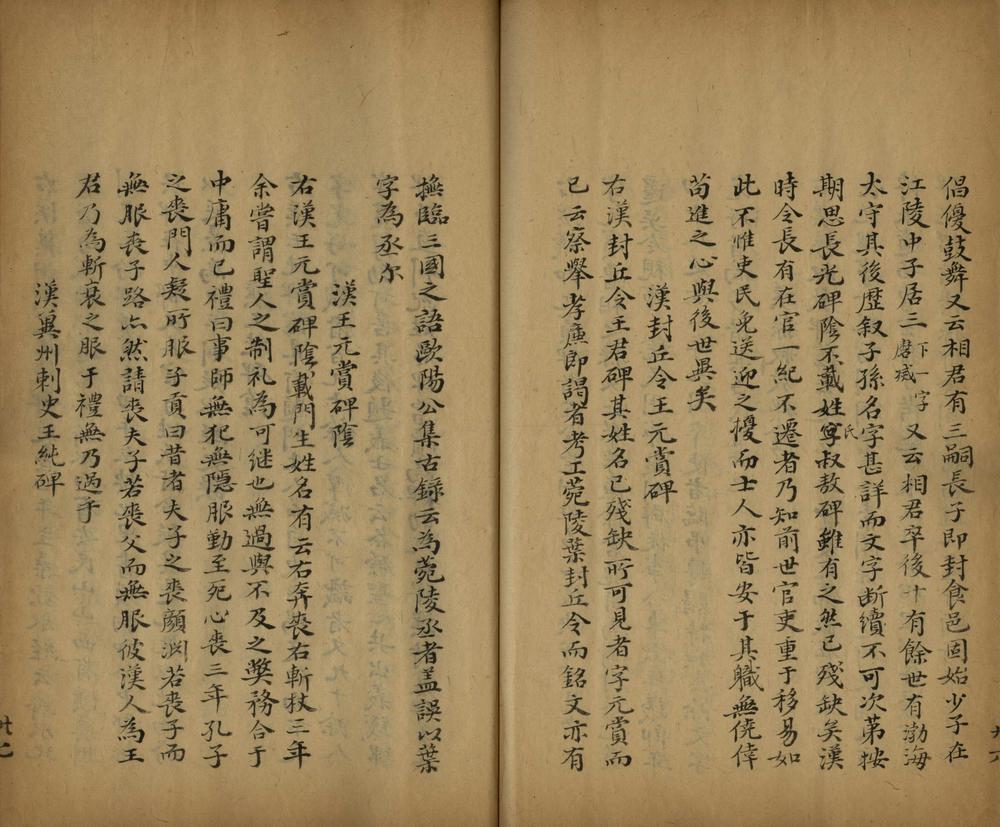 倡優鼓舞又云相君有三嗣長子即封食邑固始少子在
江陵中子居三下一字磨滅又云相君卒後十有餘世有渤海
太守其後歷叙子孫名字甚詳而文字断續不可次第按
期思長光碑陰不載姓氏寧叔敖碑雖有之然已殘缺矣漢
時令長有在官一紀不遷者乃知前世官吏重于移易如
此不惟吏民免送迎之擾而士人亦皆安于其職無僥倖
苟進之心與後世異矣
漢封丘令王元賞碑
右漢封丘令王君碑其姓名已殘缺所可見者字元賞而
已云察舉孝廉郎謁者考工菀陵葉封丘令而銘文亦有
撫臨三國之語歐陽公集古録云為菀陵丞者盖誤以葉
字為丞尔
漢王元賞碑陰
右漢王元賞碑陰載門生姓名有云右奔喪右斬杖三年
余嘗謂聖人之制礼為可継也無過與不及之獘務合于
中庸而已禮曰事師無犯無隱服勤至死心喪三年孔子
之喪門人疑所服子貢曰昔者夫子之喪顔淵若喪子而
無服喪子路亦然請喪夫子若喪父而無服彼漢人為王
君乃為斬衰之服于禮無乃過乎
漢冀州刺史王純碑
廿七